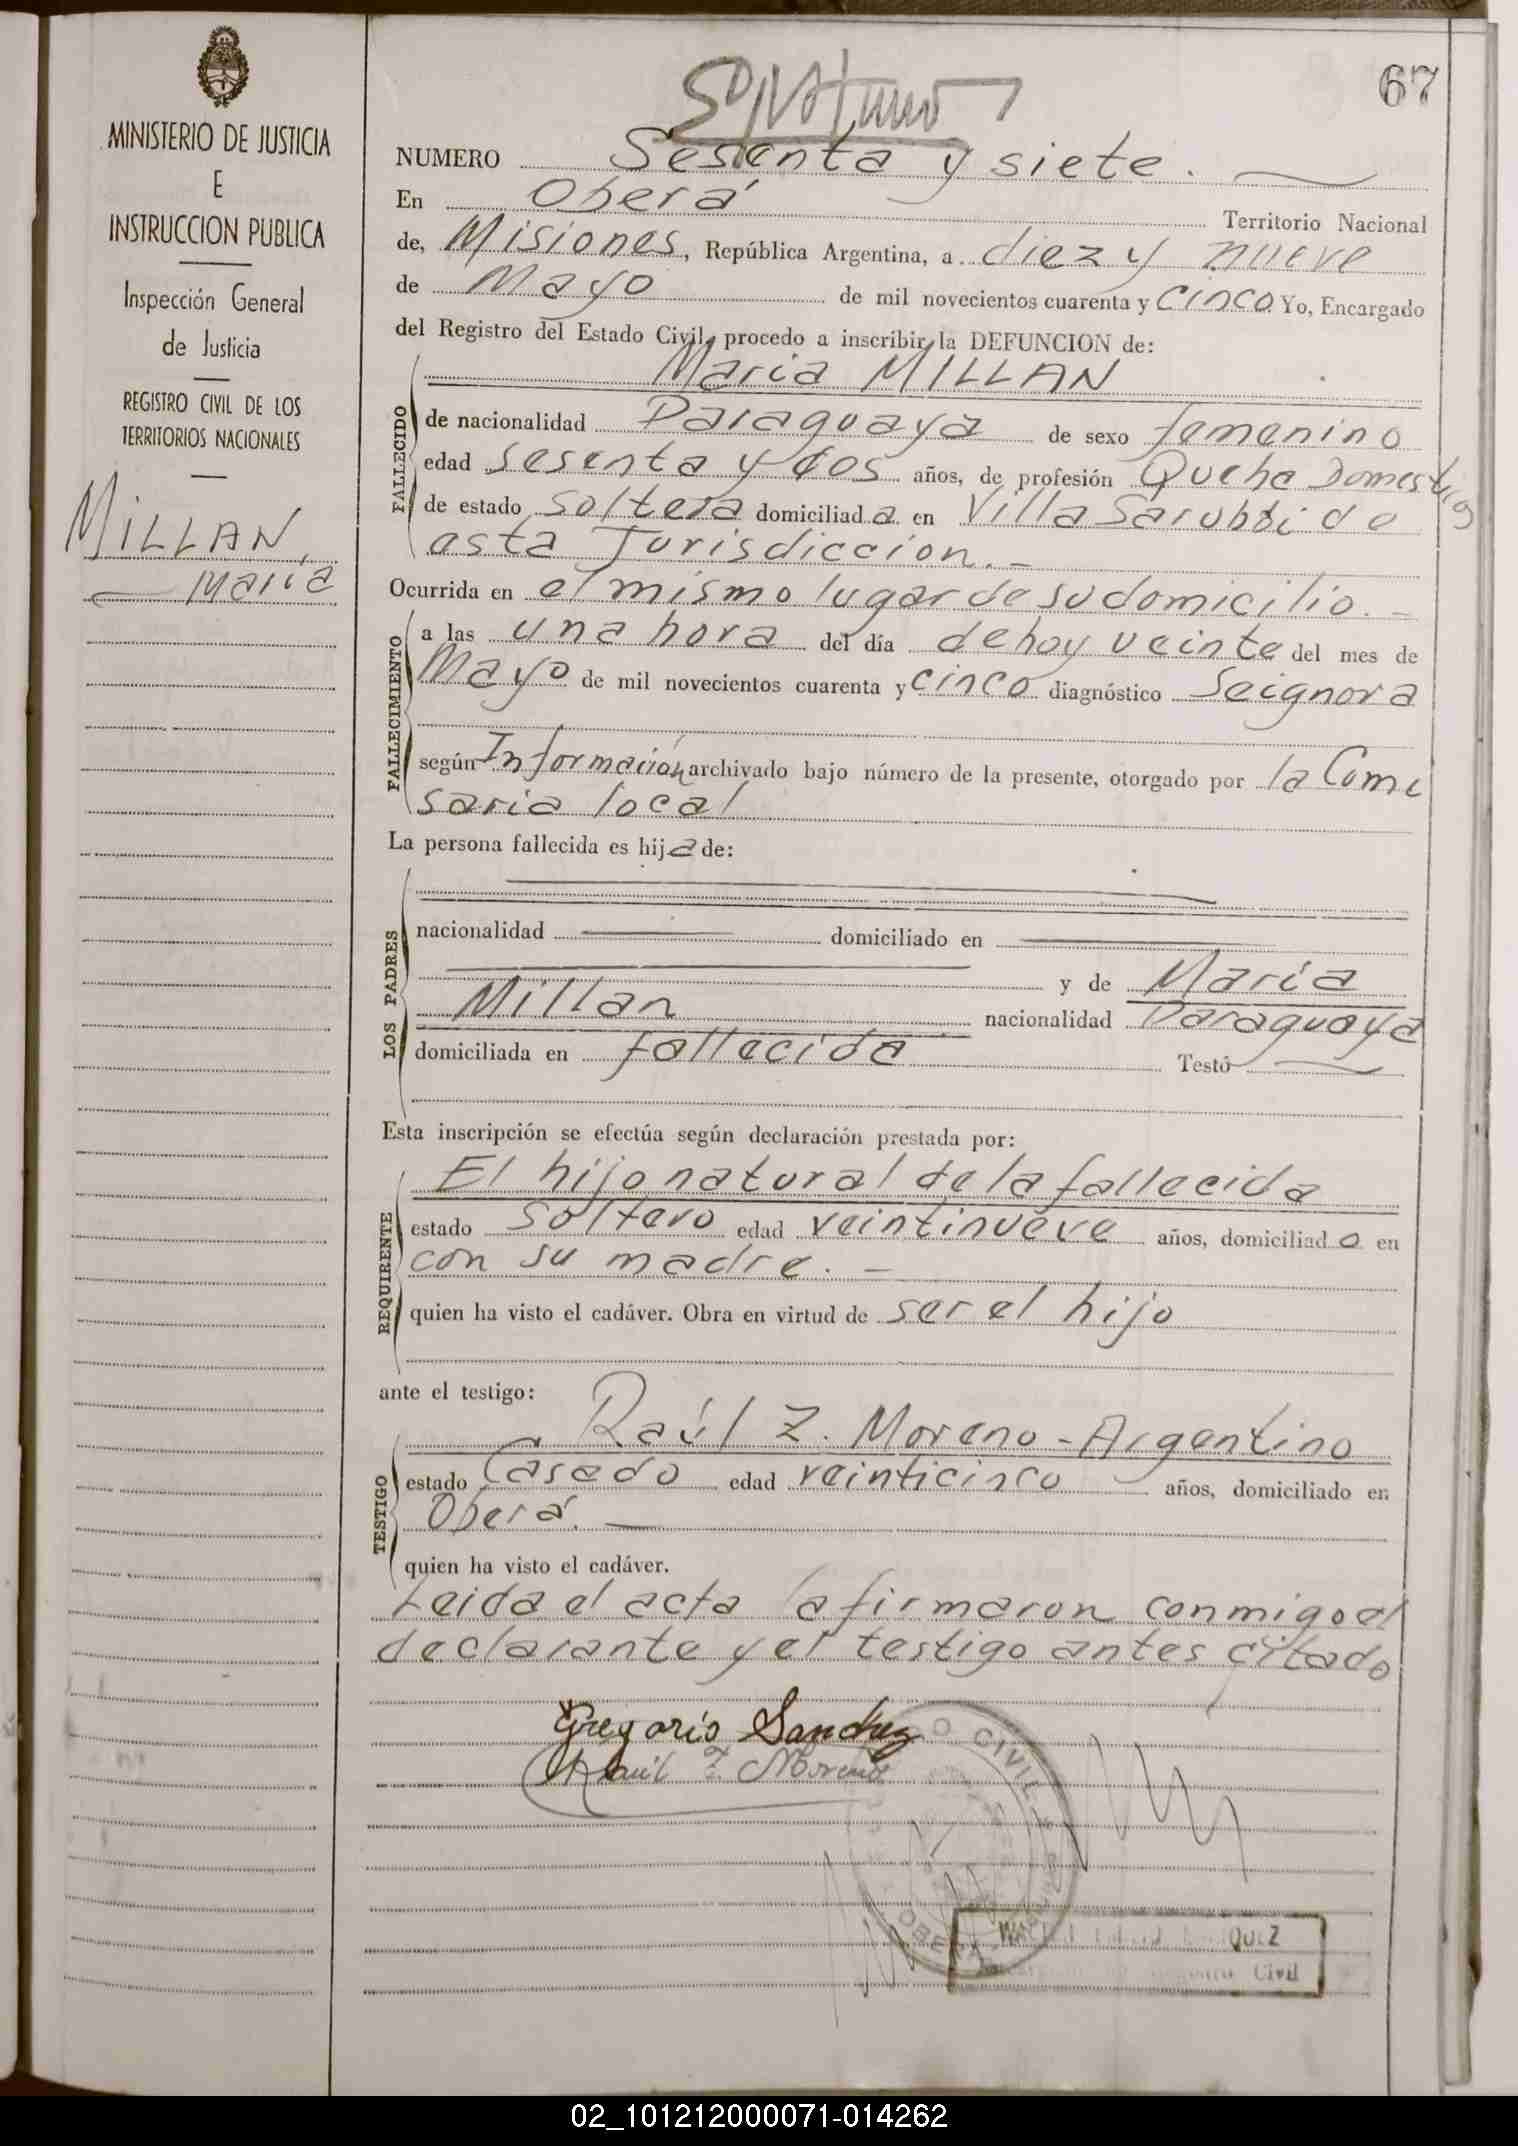 67
MINISTERIO DE JUSTICIA
E
INSTRUCCION PUBLICA
Inspección General
de Justicia
REGISTRO CIVIL DE LOS
TERRITORIOS NACIONALES
MILLAN,
Maria
NUMERO Sesenta y siete.
En Oberá Territorio Nacional
de, Misiones, República Argentina, a diez y nueve
de Mayo de mil novecientos cuarenta y cinco Yo, Encargado
del Registro del Estado Civil, procedo a inscribir la DEFUNCION de:
Maria MILLAN
FALLECIDO
de nacionalidad Paraguaya de sexo femenino
edad sesenta y dos años, de profesión Queha Domestico
de estado soltera domiciliada en Villa Sarubbi de
esta Jurisdiccion.-
Ocurrida en el mismo lugar de su domicilio.-
FALLECIMIENTO
a las una hora del día de hoy veinte del mes de
Mayo de mil novecientos cuarenta y cinco diagnóstico Seignora
según Información archivado bajo número de la presente, otorgado por la Comi
saria local
La persona fallecida es hija de:
LOS PADRES
nacionalidad domiciliado en
y de Maria
Millan nacionalidad Paraguaya
domiciliada en fallecida Testó
Esta inscripción se efectúa según declaración prestada por:
REQUIRENTE
El hijo natural de la fallecida
estado soltero edad veintinueve años, domiciliado en
con su madre.-
quien ha visto el cadáver. Obra en virtud de ser el hijo
ante el testigo:
TESTIGO
Raúl Z. Moreno - Argentino
estado Casado edad veinticinco años, domiciliado en
Oberá.
quien ha visto el cadáver.
Leida el acta la firmaron conmigo el
declarante y el testigo antes citado
Gregorio Sanchez
Raúl Z. Moreno
O CIVIL
OBERA
QUEZ
Civil
02_101212000071-014262